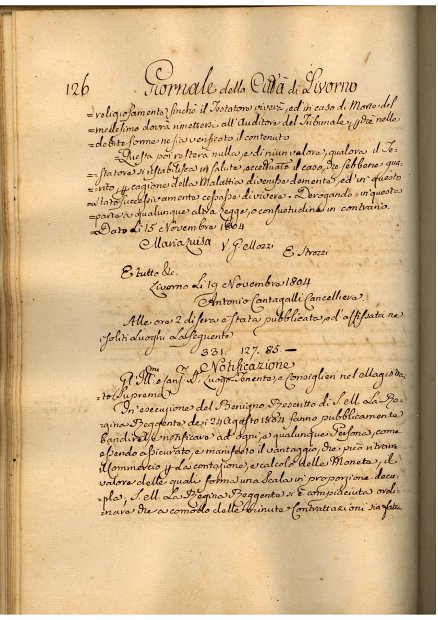 126 Giornale della Città di Livorno
=religiosamente finchè il Testatore viverà, ed in caso di Morte del
medesimo dovrà rimettersi all'Auditore del Tribunale, nelle
debite forme ne sia verificato il contenuto
Questa poi resterà nulla, e di niun valore, qualora il Te=
=statore si ristabilisca in salute, eccettuato il caso, che sebbene gua=
=rito, cagione della Malattia divenisse demente, ed in questo
stato successivamente cessasse di vivere. Derogando in questa
=parte a qualunque altra Legge, o consuetudine in contrario.
Dato Li 15 Novembre 1804
Maria Luisa V G. Bellozzi
E. Strozzi
E tutto &c.
Livorno Li 19 Novembre 1804
Antonio Cantagalli Cancelliere
Alle ore 2 di sera è stata pubblicata, ed affissata ne
soliti Luoghi La seguente
331. 127. 85. —
Notificazione
Gl' Luogo Tenente, e Consiglieri nel Magistra=
to Supremo
In esecuzione del Benigno Rescritto di S. M. La Re=
gina Reggente de' 24 Agosto 1804 fanno pubblicamente
bandire, e notificare ad ogni, e qualunque Persona, come
essendo assicurato, e manifesto il vantaggio, che può ritrarre
il Commercio La contazione, e calcolo delle Monete, il
valore delle quali forma una Scala in proporzione decu=
pla, S. M. La Regina Reggente si è compiaciuta ordi=
nare che a comodo delle minute Contrattazioni sia fatta